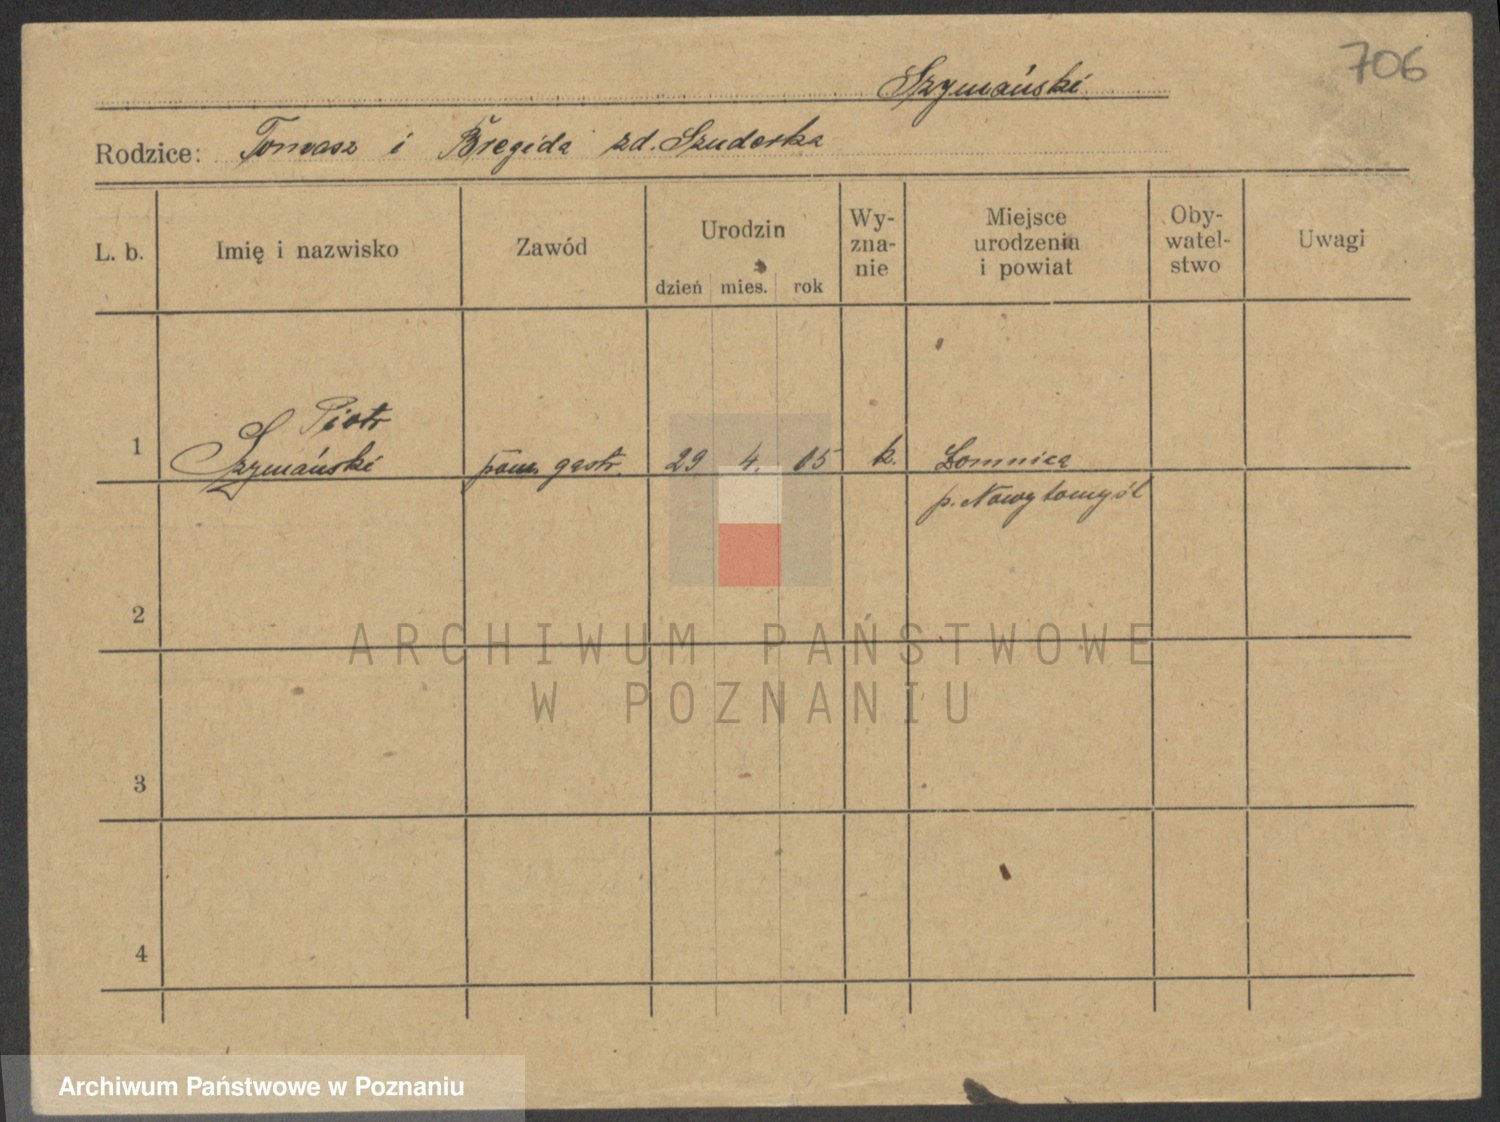 706
Szymański
Rodzice: Tomasz i Bregida zd. Szuderka
L. b.
Imię i nazwisko
Zawód
Urodzin
dzień mies. rok
Wy-
zna-
nie
Miejsce
urodzenia
i powiat
Oby-
watel-
stwo
Uwagi
1
Piotr
Szymański
pom. gastr.
29 4. 05
k.
Łomnica
p. Nowytomyśl
2
ARCHIWUM PAŃSTWOWE
W POZNANIU
3
4
Archiwum Państwowe w Poznaniu